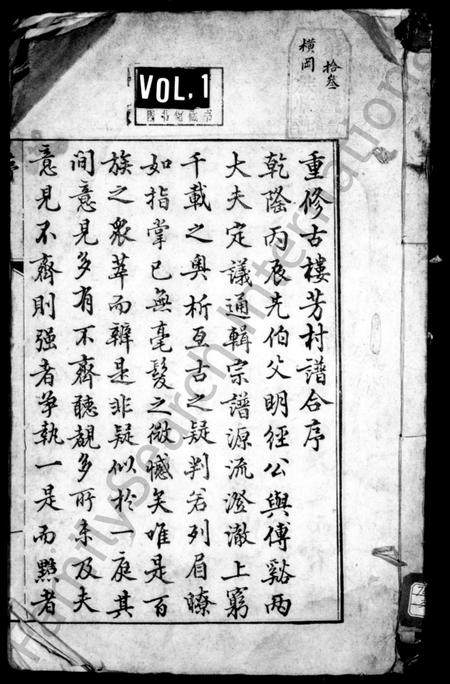 VOL.1
橫岡
拾叁
重修古樓芳村譜合序
乾隆丙辰先伯父明經公與傅谿兩
大夫定議通輯宗譜源流澄澈上窮
千載之奥析亙古之疑判若列眉瞭
如指掌已無毫髮之微憾矣唯是百
族之眾萃而辯是非疑似於一庭其
間意見多有不齊聽覩多所未及夫
意見不齊則强者爭執一是而黠者
FamilySearch International